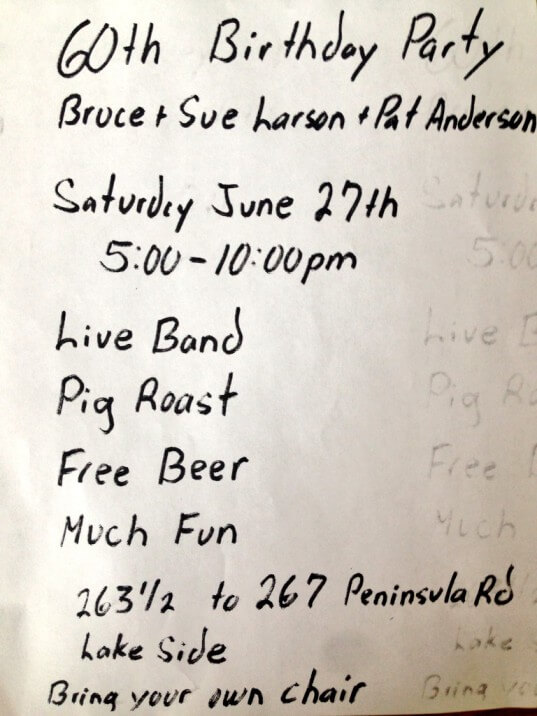 60th Birthday Party
Bruce + Sue Larson + Pat Anderson
Saturday June 27th
5:00 - 10:00pm
Live Band
Pig Roast
Free Beer
Much Fun
263 1/2 to 267 Peninsula Rd
Lake Side
Bring your own chair